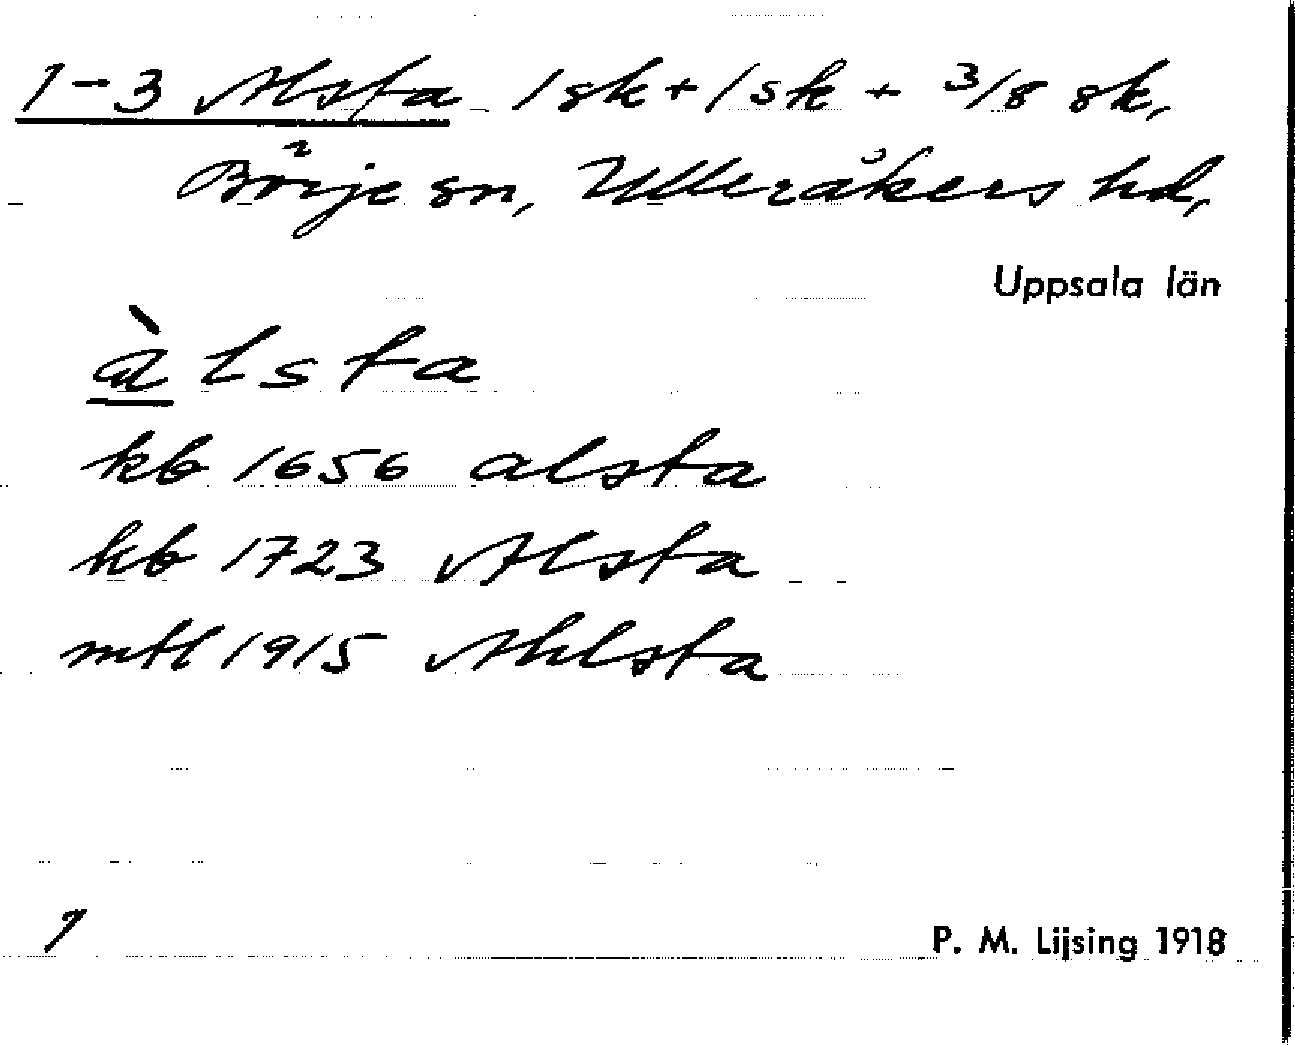 1-3 Alsta 1 sk + 1 sk + 3/8 sk,
Börje sn, Ulleråkers hd,
Uppsala län
àlsta
kb 1656 alsta
kb 1723 Alsta
mtl 1915 Ahlsta
1
P. M. Lijsing 1918